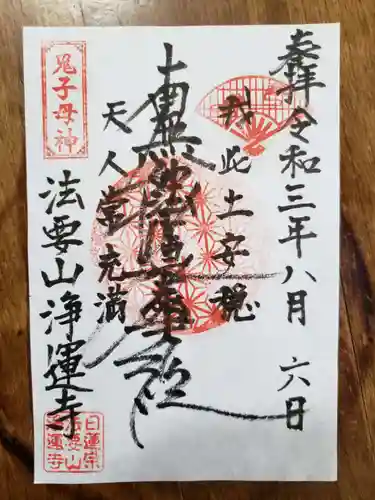 奉拝 令和三年八月六日
我此土安穏
南無妙法蓮華経
天人常充満
鬼子母神
法要山 浄運寺
日蓮宗
法要山
浄運寺